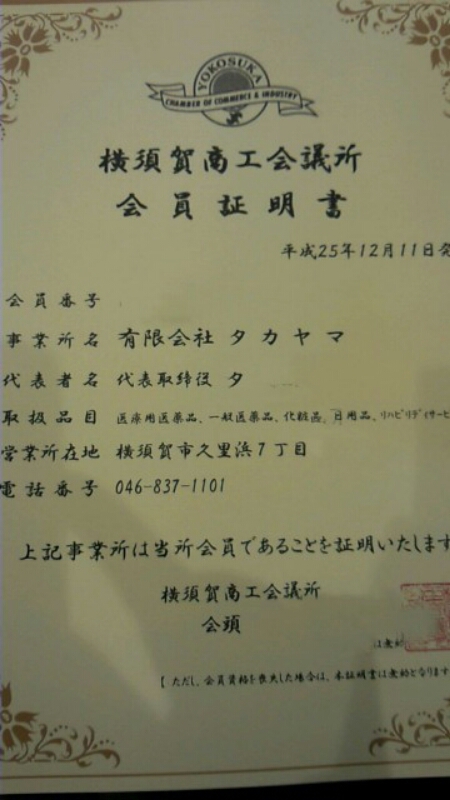 YOKOSUKA
CHAMBER OF COMMERCE & INDUSTRY
横須賀商工会議所
会員証明書
平成25年12月11日発
会員番号
事業所名 有限会社タカヤマ
代表者名 代表取締役 タ
取扱品目 医療用医薬品、一般医薬品、化粧品、日用品、リハビリデイサービ
営業所在地 横須賀市久里浜7丁目
電話番号 046-837-1101
上記事業所は当所会員であることを証明いたします
横須賀商工会議所
会頭
は無効
【ただし、会員資格を喪失した場合は、本証明書は無効となります